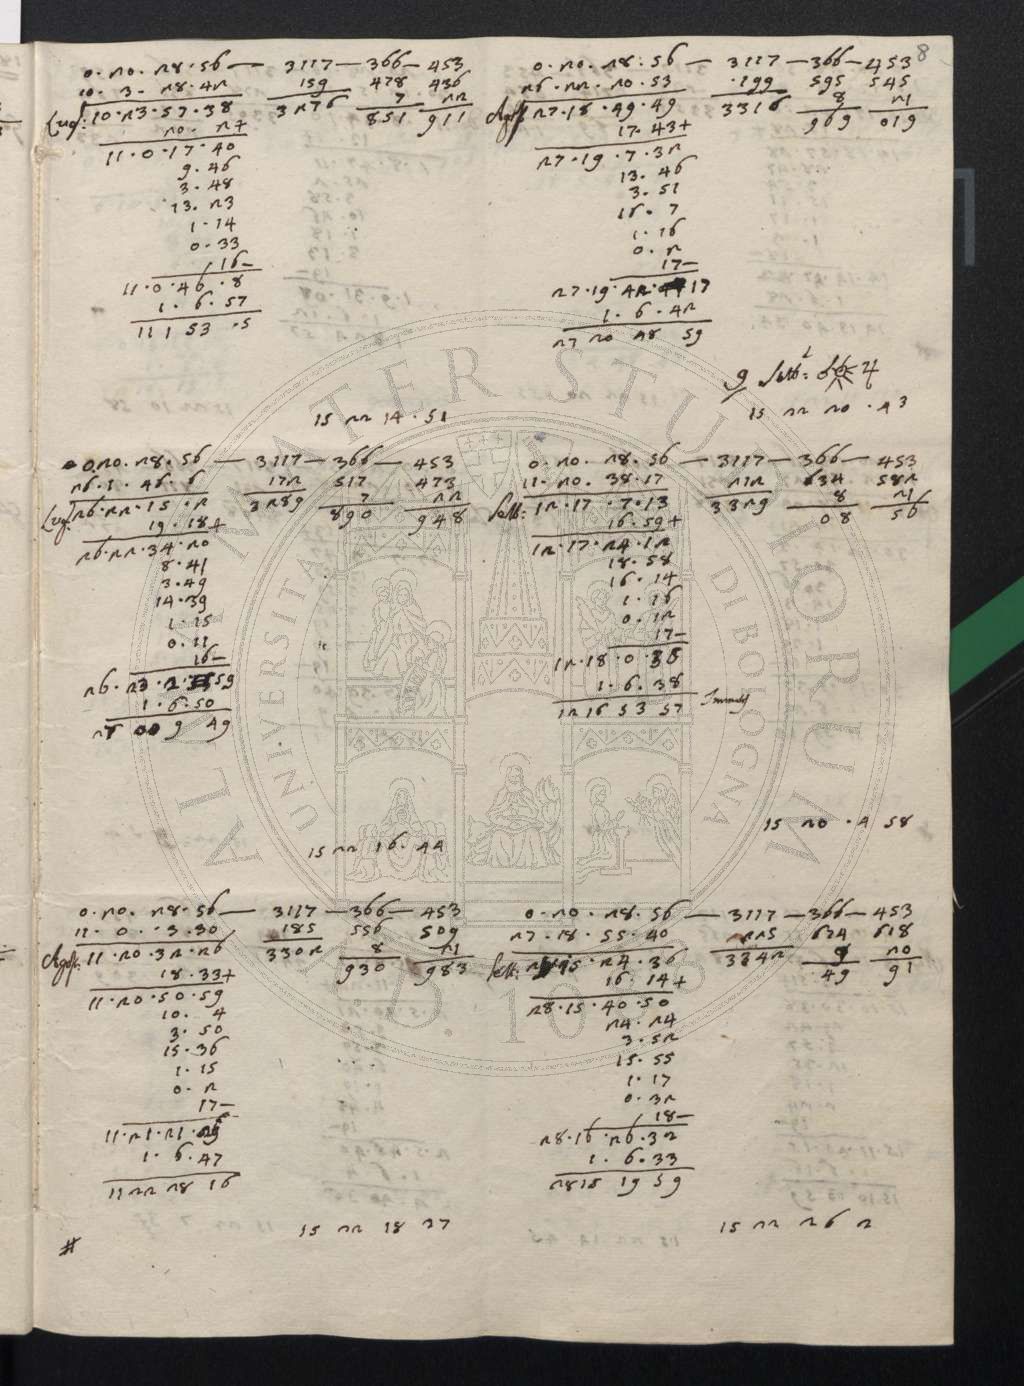 8
0. 20. 28. 56 — 3117 — 366 — 453
10. 3. 28. 42 159 478 436
Lug: 10. 23. 57. 38 3276 7 22
20. 2+ 851 911
11. 0. 17. 40
9. 46
3. 48
13. 23
1. 14
0. 33
16 —
11. 0. 46. 8
1. 6. 57
11 1 53 . 5
15 22 14. 51
0. 20. 28. 56 — 3117 — 366 — 453
26. 22. 20. 53 199 595 545
Agst: 27. 18. 49. 49 3316 8 21
17. 43+ 969 019
27. 19. 7. 32
13. 46
3. 51
16. 7
1. 16
0. 2
17 —
27. 19. 42. 17
1. 6. 42
27 20 48 59
9 Settb: ♃
15 22 20. 43
0. 20. 28. 56 — 3117 — 366 — 453
26. 1. 46. 6 172 517 473
Lug: 26. 22. 15. 2 3289 7 22
19. 18+ 890 948
26. 22. 34. 20
8. 41
3. 49
14. 39
1. 15
0. 11
16 —
26. 23. 2. 59
1. 6. 50
26 00 9 49
15 22 16. 44
0. 20. 28. 56 — 3117 — 366 — 453
11. 20. 38. 17 212 634 582
Sett: 12. 17. 7. 13 3329 8 21
16. 59+ 08 56
12. 17. 24. 12
18. 58
16. 14
1. 16
0. 12
17 —
12. 18. 0. 35
1. 6. 38
12 16 53 57
15 20 . 4 58
0. 20. 28. 56 — 3117 — 366 — 453
11. 0. 3. 30 185 556 509
Agst: 11. 20. 32. 26 3302 8 21
18. 33+ 930 983
11. 20. 50. 59
10. 4
3. 50
15. 36
1. 15
0. 2
17 —
11. 21. 21. 29
1. 6. 47
11 22 28 16
15 22 18 27
#
0. 20. 28. 56 — 3117 — 366 — 453
27. 18. 55. 40 225 674 618
Sett: 15. 24. 36 3342 9 20
16. 14+ 49 91
28. 15. 40. 50
24. 24
3. 52
15. 55
1. 17
0. 32
18 —
28. 16. 26. 32
1. 6. 33
28 15 19 59
15 22 26 2
ALMA MATER STUDIORUM
UNIVERSITÀ DI BOLOGNA
A.D. 1088